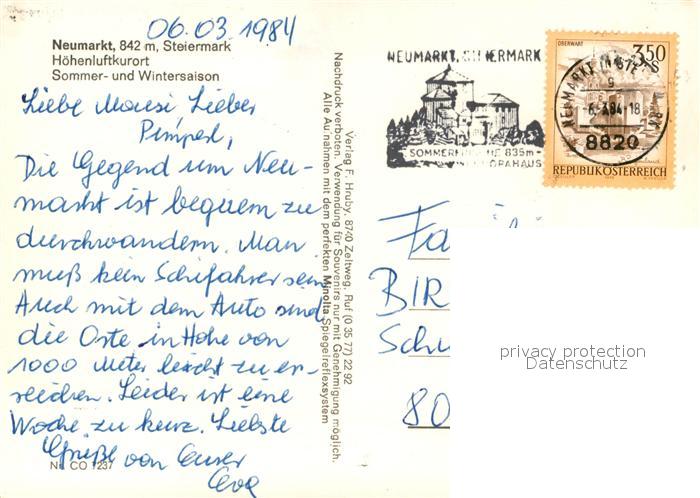 06.03.1984
Neumarkt, 842 m, Steiermark
Höhenluftkurort
Sommer- und Wintersaison
Liebe Mausi Lieber
Pimperl,
Die Gegend um Neu-
markt ist bequem zu
durchwandern. Man
muß kein Schifahrer sein
Auch mit dem Auto sind
die Orte in Höhe von
1000 Meter leicht zu er-
reichen. Leider ist eine
Woche zu kurz. Liebste
Grüße von Eurer
Eva
Nr. CO 1237
Verlag F. Hruby, 8740 Zeltweg, Ruf (0 35 77) 22 92
Nachdruck verboten. Verwendung für Souvenirs nur mit Genehmigung möglich.
Alle Aufnahmen mit dem perfekten Minolta Spiegelreflexsystem
NEUMARKT, STEIERMARK
SOMMERFRISCHE 835m-
EUROPAHAUS
OBERWART
3.50
S
NEUMARKT IN STEIERMARK
g
-6.-3.84-18
8820
REPUBLIK ÖSTERREICH
Fa
BIR
Schu
80
privacy protection
Datenschutz